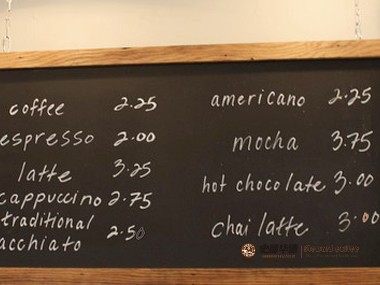 coffee 2.25
espresso 2.00
latte 3.25
cappuccino 2.75
traditional
acchiato 2.50
americano 2.25
mocha 3.75
hot chocolate 3.00
chai latte 3.00